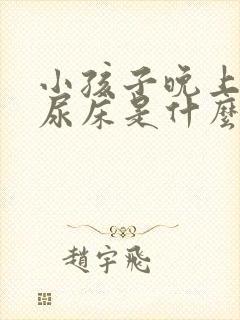 小孩子晚上
尿床是什麼
趙宇飛